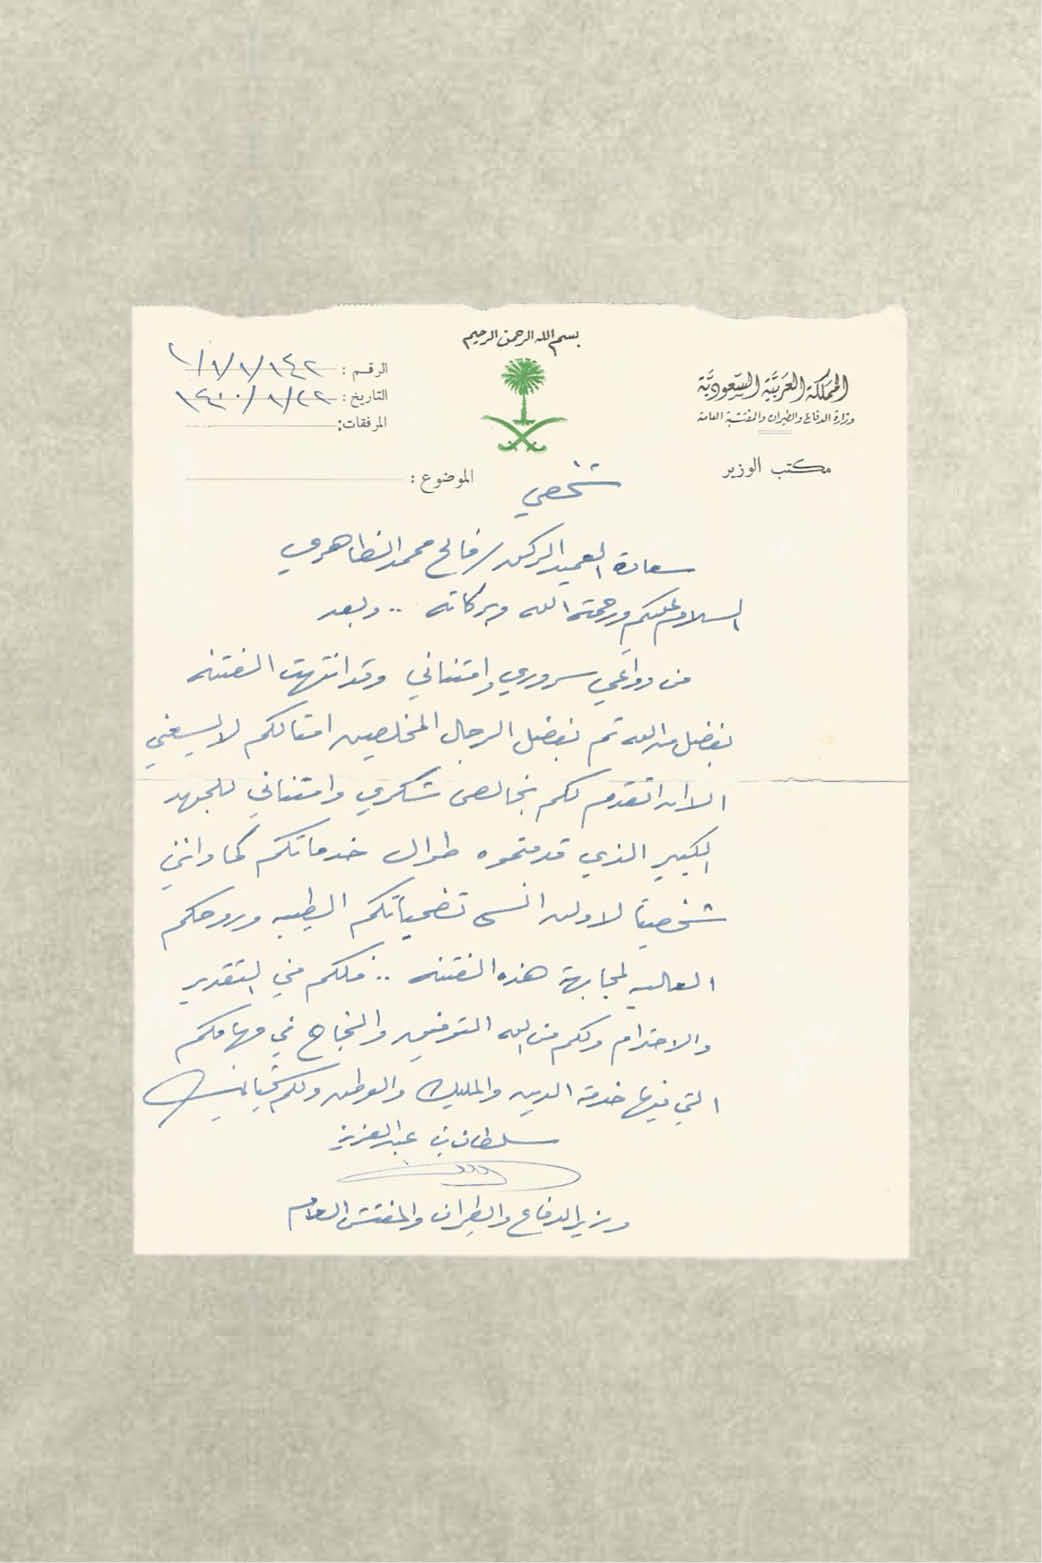 بسم الله الرحمن الرحيم
المملكة العربية السعودية
وزارة الدفاع والطيران والمفتشية العامة
مكتب الوزير
الرقم : ١/١/١/١٤٢
التاريخ : ١٤٠٠/١/٢٢
المرفقات:
الموضوع :
شخصي
سعادة العميد الركن / فالح محمد الظاهري
السلام عليكم ورحمة الله وبركاته .. وبعد
من دواعي سروري وامتناني وقد انتهت الفتنه
بفضل من الله ثم بفضل الرجال المخلصين امثالكم لا يسعني
الا ان اتقدم لكم بخالص شكري وامتناني للجهد
الكبير الذي قدمتموه طوال خدماتكم كما وانني
شخصياً لا ولن انسى تضحياتكم الطيبه وروحكم
العاليه لمجابهة هذه الفتنه .. فلكم مني التقدير
والاحترام ولكم من الله التوفيق والنجاح في مهامكم
التي فيها خدمة الدين والمليك والوطن ولكم تحياتي
سلطان بن عبدالعزيز
وزير الدفاع والطيران والمفتش العام